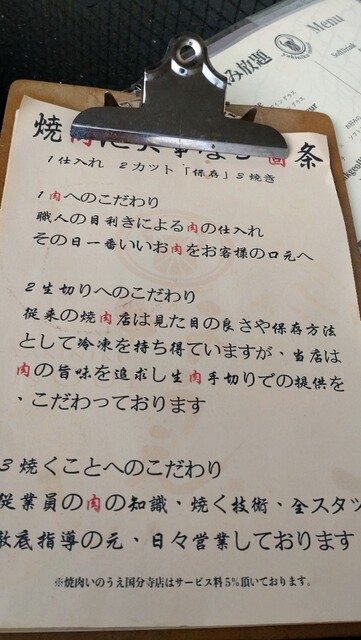 み放題
Menu
焼肉
条
1仕入れ 2カット「保存」3焼き
1肉へのこだわり
職人の目利きによる肉の仕入れ
その日一番いいお肉をお客様の口元へ
2生切りへのこだわり
従来の焼肉店は見た目の良さや保存方法
として冷凍を持ち得ていますが、当店は
肉の旨味を追求し生肉手切りでの提供を
、こだわっております
3焼くことへのこだわり
従業員の肉の知識、焼く技術、全スタッ
徹底指導の元、日々営業しております
※焼肉いのうえ国分寺店はサービス料5%頂いております。